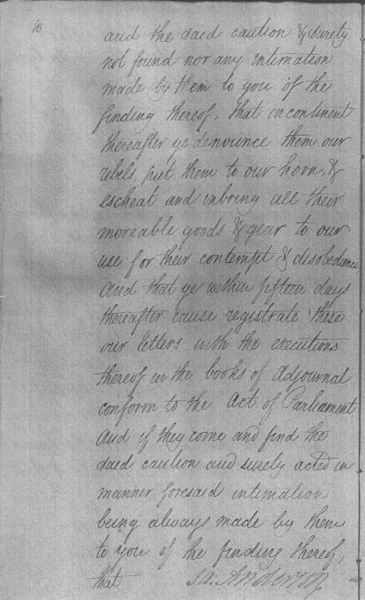 10
and the said caution & surety
not found nor any intimation
made by them to you of the
finding thereof, that incontinent
thereafter ye denounce them our
rebels, put them to our horn, &
escheat and inbring all their
moveable goods & gear to our
use for their contempt & disobedience
And that ye within fifteen days
thereafter cause registrate these
our letters with the executions
thereof in the books of Adjournal
conform to the Act of Parliament,
And if they come and find the
said caution and surely acted in
manner foresaid intimation
being always made by them
to you of the finding thereof,
that Ja. Anderson